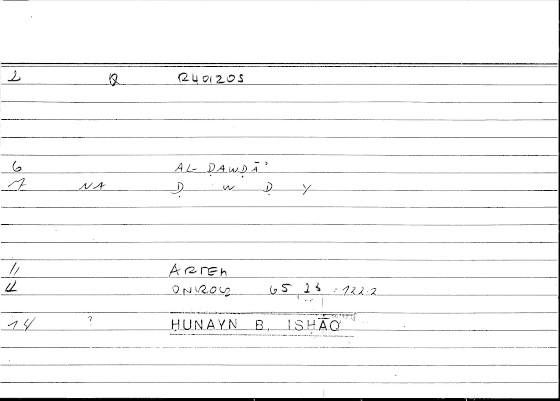 2 R R401205
6 AL-ḌAWḌĀʾ
7 NA Ḍ W Ḍ Y
11 ARTEM
ONIROS 65 , 26 : 122.2
14 ? HUNAYN B. ISHĀQ